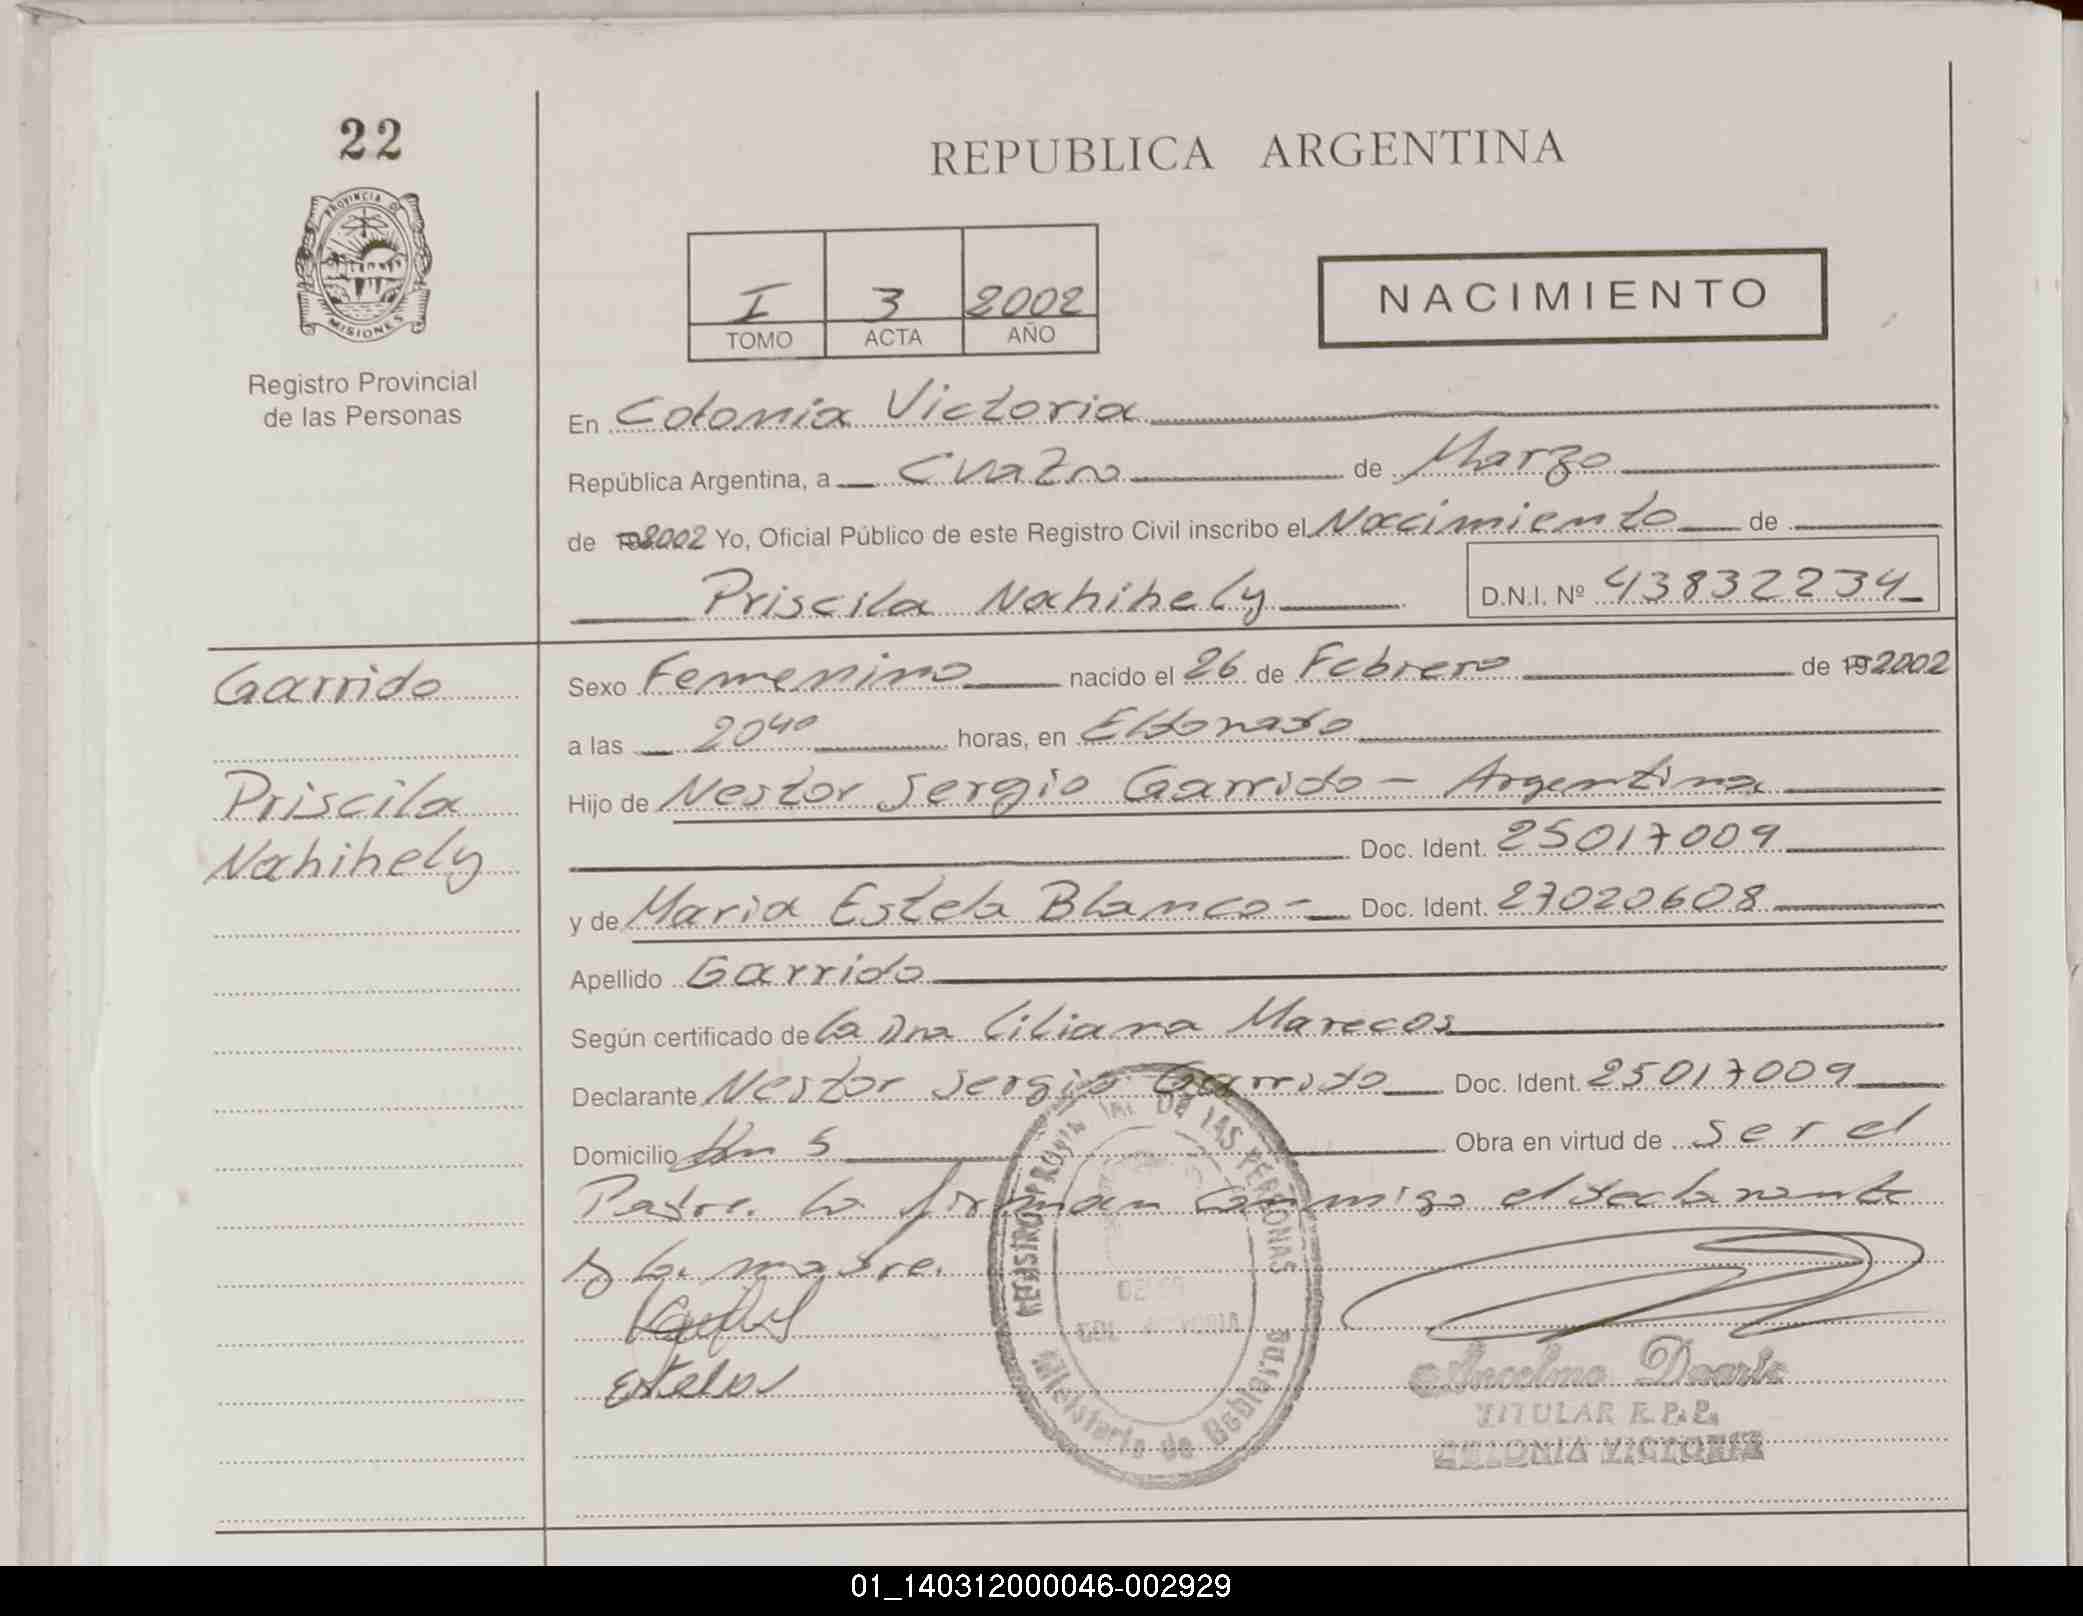 22
REPUBLICA ARGENTINA
PROVINCIA DE
MISIONES
Registro Provincial
de las Personas
I 3 2002
TOMO ACTA AÑO
NACIMIENTO
En Colonia Victoria
República Argentina, a Cuatro de Marzo
de 2002 Yo, Oficial Público de este Registro Civil inscribo el Nacimiento de
Priscila Nahihely D.N.I. Nº 43832234
Garrido
Priscila
Nahihely
Sexo Femenino nacido el 26 de Febrero de 192002
a las 20 40 horas, en Eldorado
Hijo de Nestor Sergio Garrido - Argentina
Doc. Ident. 25017009
y de Maria Estela Blanco - Doc. Ident. 27020608
Apellido Garrido
Según certificado de la Dra Liliana Marecos
Declarante Nestor Sergio Garrido Doc. Ident. 25017009
Domicilio Km 5 Obra en virtud de ser el
Padre. la firman conmigo el declarante
y la madre.
REGISTRO PROVINCIAL DE LAS PERSONAS
Ministerio de Gobierno
Estela
Ancelmo Duarte
TITULAR R.P.P.
COLONIA VICTORIA
01_140312000046-002929